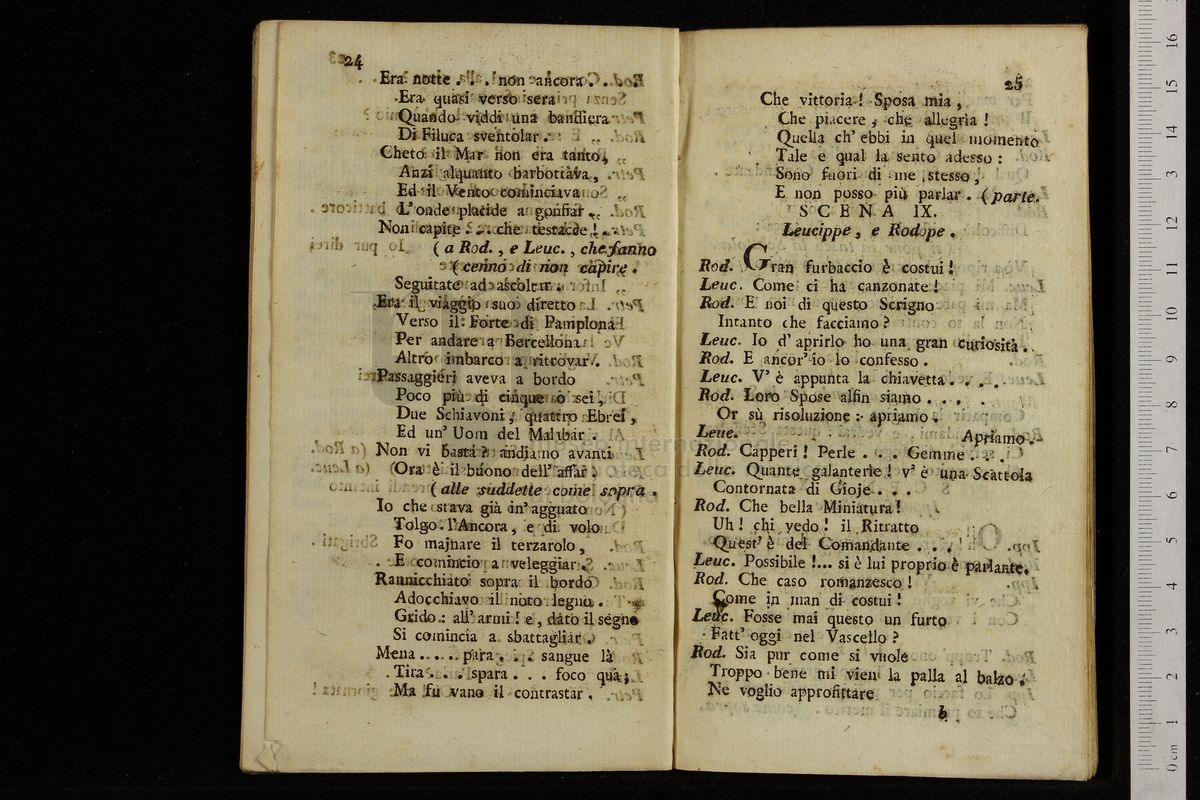 24
Era notte . . . non ancora . . .
Era quasi verso sera
Quando viddi una bandiera
Di Filuca sventolar .
Cheto il Mar non era tanto,
Anzi alquanto barbottava,
Ed il Vento cominciava
L'onde placide a gonfiar .
Non capite . . . che testacce !
( a Rod. , e Leuc. , che fanno
cenno di non capire .
Seguitate ad ascoltar .
Era il viaggio suo diretto
Verso il Forte di Pamplona
Per andare a Bercellona
Altro imbarco a ritrovar .
Passaggieri aveva a bordo
Poco più di cinque o sei,
Due Schiavoni, quattro Ebrei,
Ed un' Uom del Malabar .
Non vi basta? andiamo avanti
(Ora è il buono dell' affar.
( alle suddette come sopra .
Io che stava già in' agguato
Tolgo l'Ancora, e di volo
Fo majnare il terzarolo,
E comincio a veleggiar.
Rannicchiato sopra il bordo
Adocchiavo il noto legno .
Grido : all' armi ! e, dato il segno
Si comincia a sbattagliar .
Mena . . . . para . . . sangue là
Tira . . . spara . . . foco quà;
Ma fu vano il contrastar .
25
Che vittoria ! Sposa mia ,
Che piacere , che allegria !
Quella ch' ebbi in quel momento
Tale e qual la sento adesso :
Sono fuori di me stesso ,
E non posso più parlar . ( parte.
SCENA IX.
Leucippe , e Rodope .
Rod. Gran furbaccio è costui !
Leuc. Come ci ha canzonate !
Rod. E noi di questo Scrigno
Intanto che facciamo ?
Leuc. Io d' aprirlo ho una gran curiosità .
Rod. E ancor' io lo confesso .
Leuc. V' è appunta la chiavetta . . . .
Rod. Loro Spose alfin siamo . . . .
Or sù risoluzione : apriamo .
Leuc. Apriamo .
Rod. Capperi ! Perle . . . Gemme . . .
Leuc. Quante galanterie ! v' è una Scattola
Contornata di Gioje . . .
Rod. Che bella Miniatura !
Uh ! chi vedo ! il Ritratto
Quest' è del Comandante . . .
Leuc. Possibile !... si è lui proprio è parlante.
Rod. Che caso romanzesco !
Come in man di costui !
Leuc. Fosse mai questo un furto
Fatt' oggi nel Vascello ?
Rod. Sia pur come si vuole
Troppo bene mi vien la palla al balzo .
Ne voglio approfittare
b